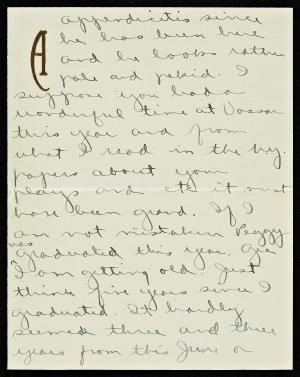 A
appendicitis since
he has been here
and he looks rather
pale and petoid. I
suppose you had a
wonderful time at Vassar
this year and from
what I read in the N.Y.
papers about your
plays and etc it must
have been grand. If I
am not mistaken Peggy
was
graduated this year. Gee
I am getting old. Just
think five years since I
graduated. It hardly
seemed three and three
years from this June or